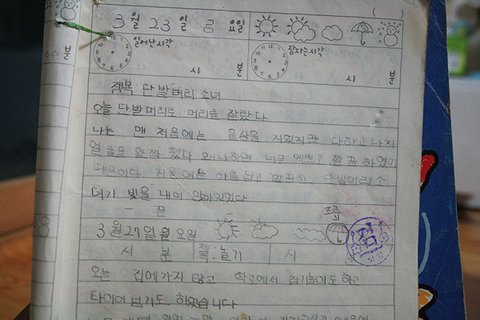 3월 23일 금요일
일어난시각
잠자는시각
시 분
시 분
제목 단발머리 소녀
오늘 단발머리로 머리를 잘랐다.
나는 맨 처음에는 울상을 지었지만 다하고 나서
얼굴을 활짝 폈다 왜냐하면 너무 예쁘고 깜찍하였기
때문이다. 거울에는 아름답고 깜찍한 단발머리 소
녀가 빛을 내며 앉아있었다
끝
3월 27일 월요일
조금
시 분 제목: 놀기 시
검
오늘 집에 가지 않고 학교에서 잡기놀이도 하고
타이어 넘기도 하였습니다